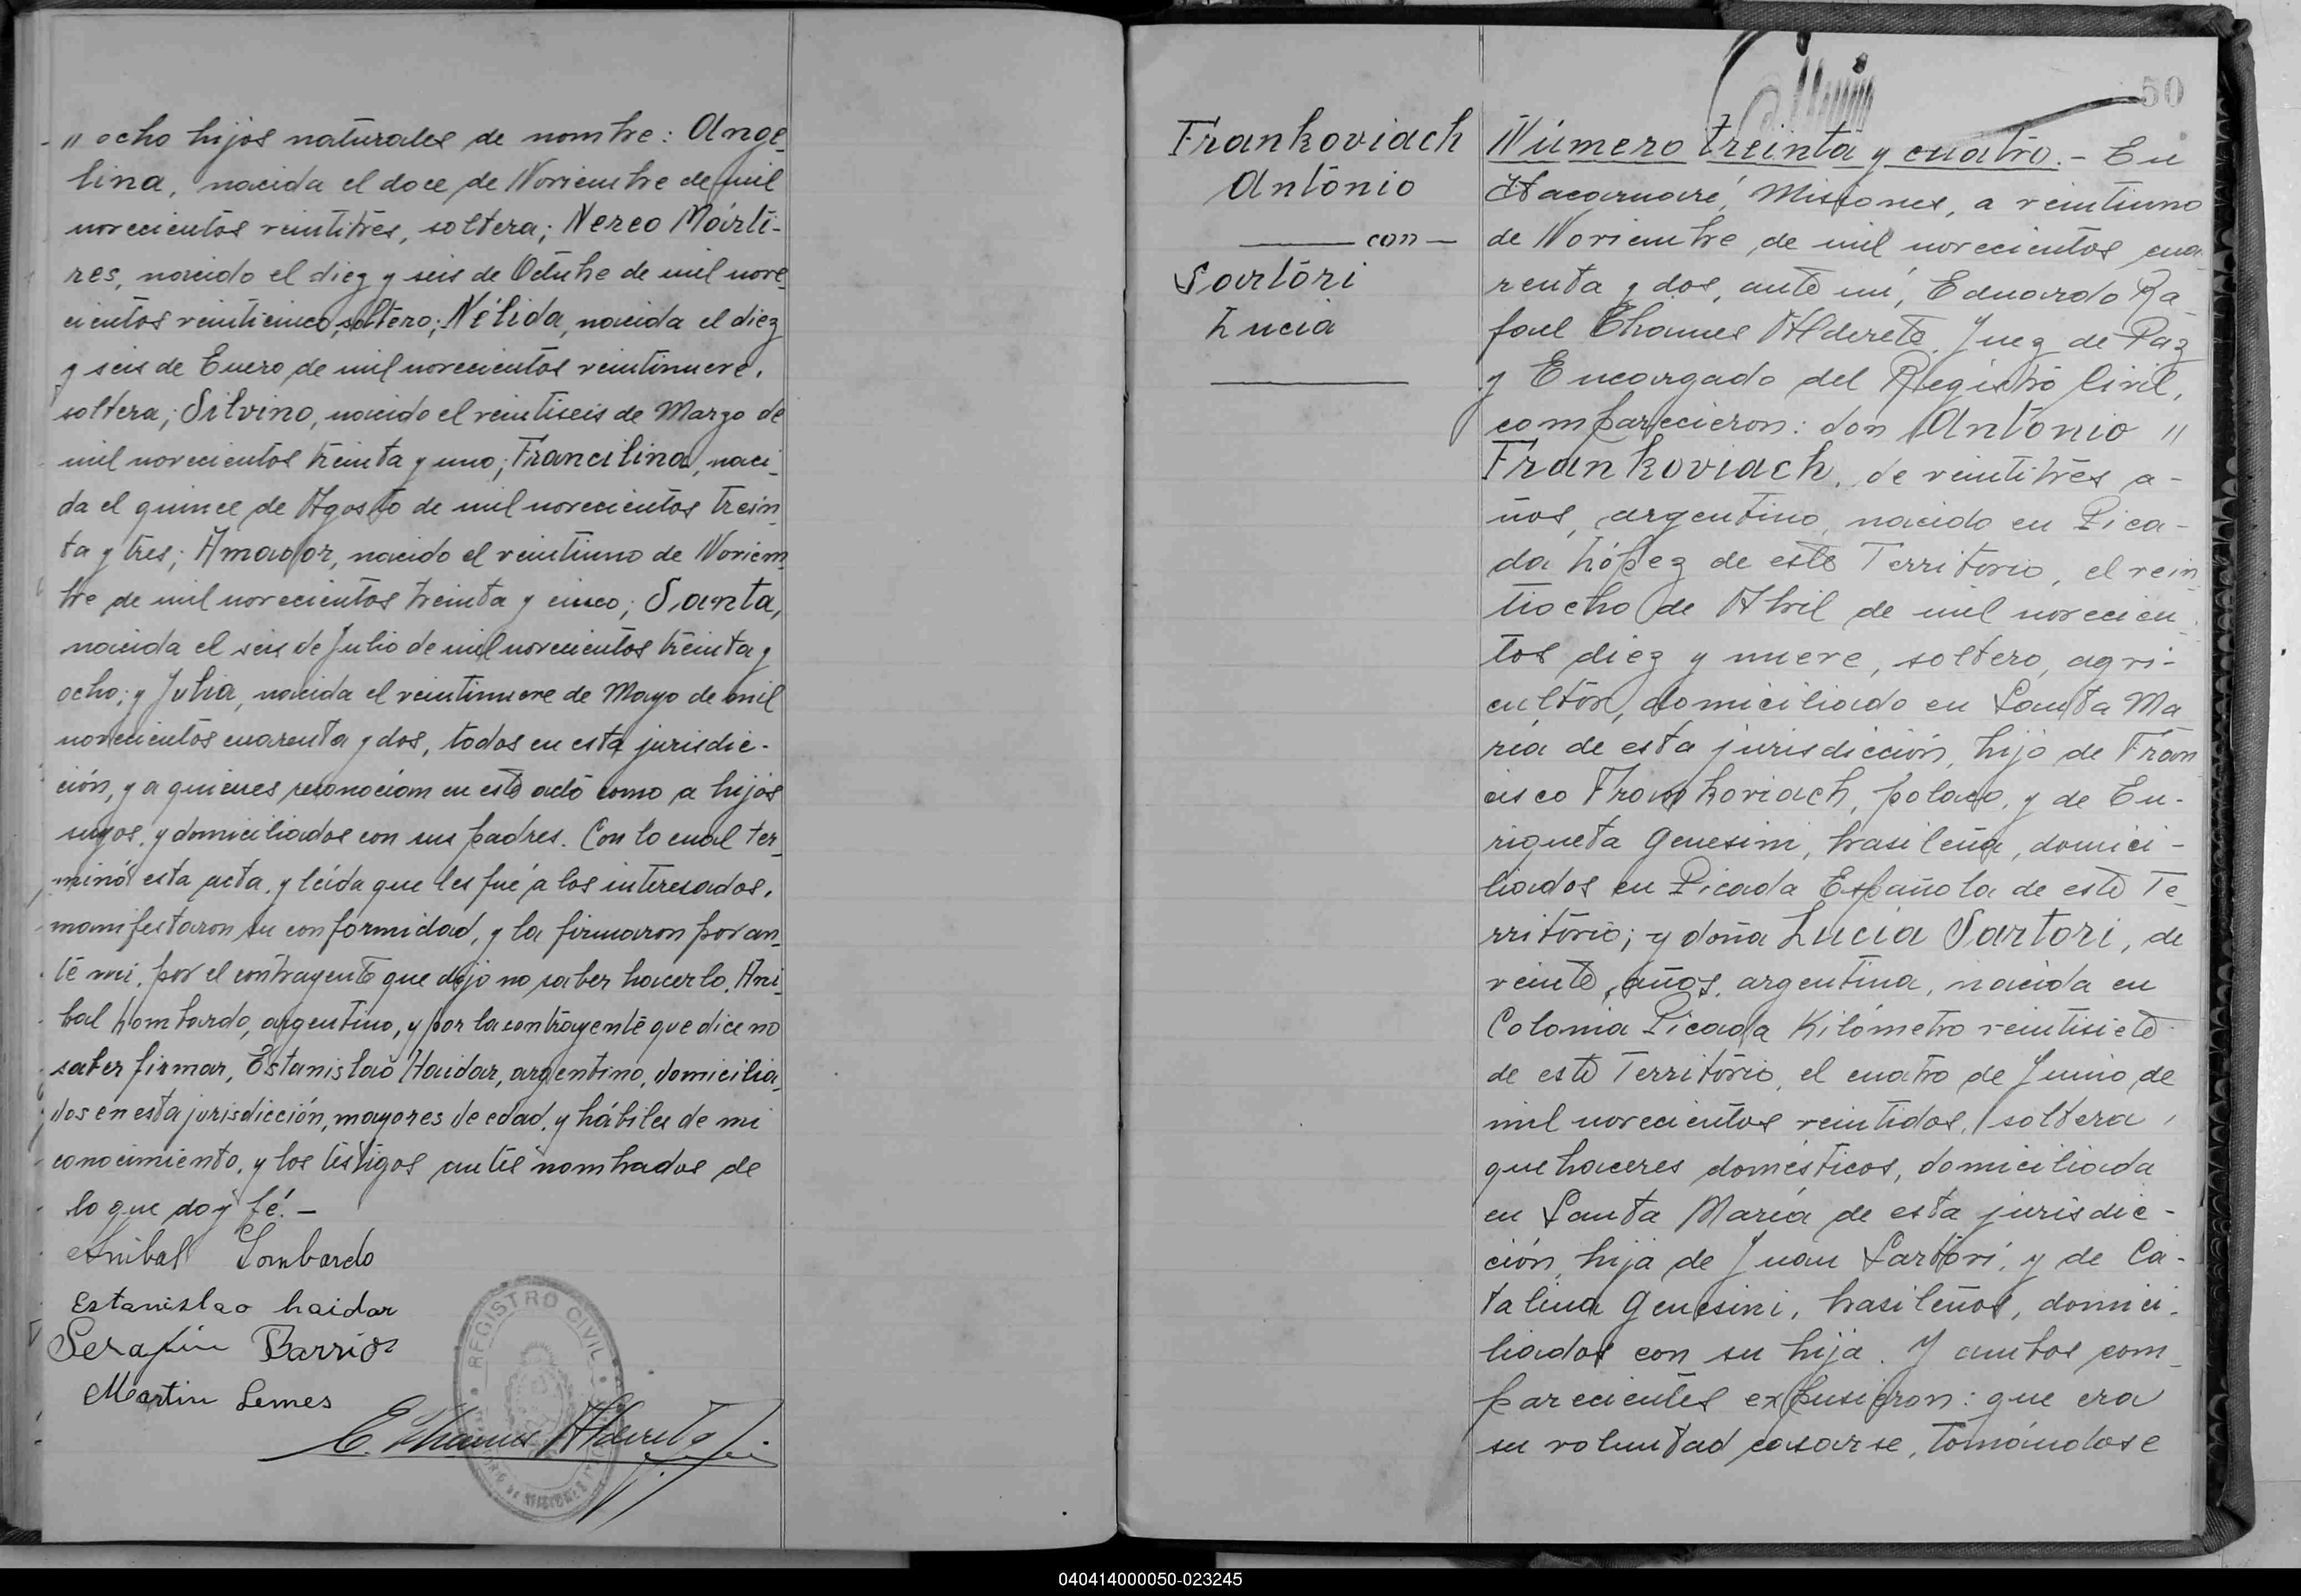 " ocho hijos naturales de nombre: Ange_
lina, nacida el doce de Noviembre de mil
novecientos veintitrés, soltera; Nereo Márti-
res, nacido el diez y seis de Octubre de mil nove_
cientos veinticinco, soltero; Nélida, nacida el diez
y seis de Enero de mil novecientos veintinueve,
soltera; Silvino, nacido el veintiseis de Marzo de
mil novecientos treinta y uno; Francilina, naci_
da el quince de Agosto de mil novecientos trein_
ta y tres; Amador, nacido el veintiuno de Noviem_
bre de mil novecientos treinta y cinco; Santa,
nacida el seis de Julio de mil novecientos treinta y
ocho; y Julia, nacida el veintinueve de Mayo de mil
novecientos cuarenta y dos, todos en esta jurisdic-
ción, y a quienes reconocian en este acto como a hijos
suyos, y domiciliados con sus padres. Con lo cual ter_
minó esta acta, y leída que les fué a los interesados,
manifestaron su conformidad, y la firmaron por an_
te mi, por el contrayente que dijo no saber hacerlo, Ani_
bal Lombardo, argentino, y por la contrayente que dice no
saber firmar, Estanislao Haidar, argentino, domicilia_
dos en esta jurisdicción, mayores de edad, y hábiles de mi
conocimiento, y los testigos antes nombrados de
lo que doy fé. -
Anibal Lombardo
Estanislao haidar
Serafin Barrios
Martin Lemes
REGISTRO CIVIL
E. Thames Alderete
50
Frankoviach
Antonio
con
Sartori
Lucia
Número treinta y cuatro. - En
Itacaruaré, Misiones, a veintiuno
de Noviembre de mil novecientos cua_
renta y dos, ante mí, Eduardo Ra_
fael Thames Alderete, Juez de Paz
y Encargado del Registro Civil,
comparecieron: don Antonio "
Frankoviach, de veintitrés a-
ños, argentino, nacido en Pica-
da López de este Territorio, el vein_
tiocho de Abril de mil novecien_
tos diez y nueve, soltero, agri-
cultor, domiciliado en Santa Ma_
ría de esta jurisdicción, hijo de Fran_
cisco Frankoviach, polaco, y de En-
riqueta Genesini, brasileña, domici-
liados en Picada Española de este Te_
rritorio; y doña Lucia Sartori, de
veinte años, argentina, nacida en
Colonia Picada Kilómetro veintisiete
de este Territorio, el cuatro de Junio de
mil novecientos veintidos, soltera,
quehaceres domésticos, domiciliada
en Santa María de esta jurisdic-
ción, hija de Juan Sartori, y de Ca-
talina Genesini, brasileños, domici-
liados con su hija. Y ambos com_
parecientes expusieron: que era
su voluntad casarse, tomándose
040414000050-023245